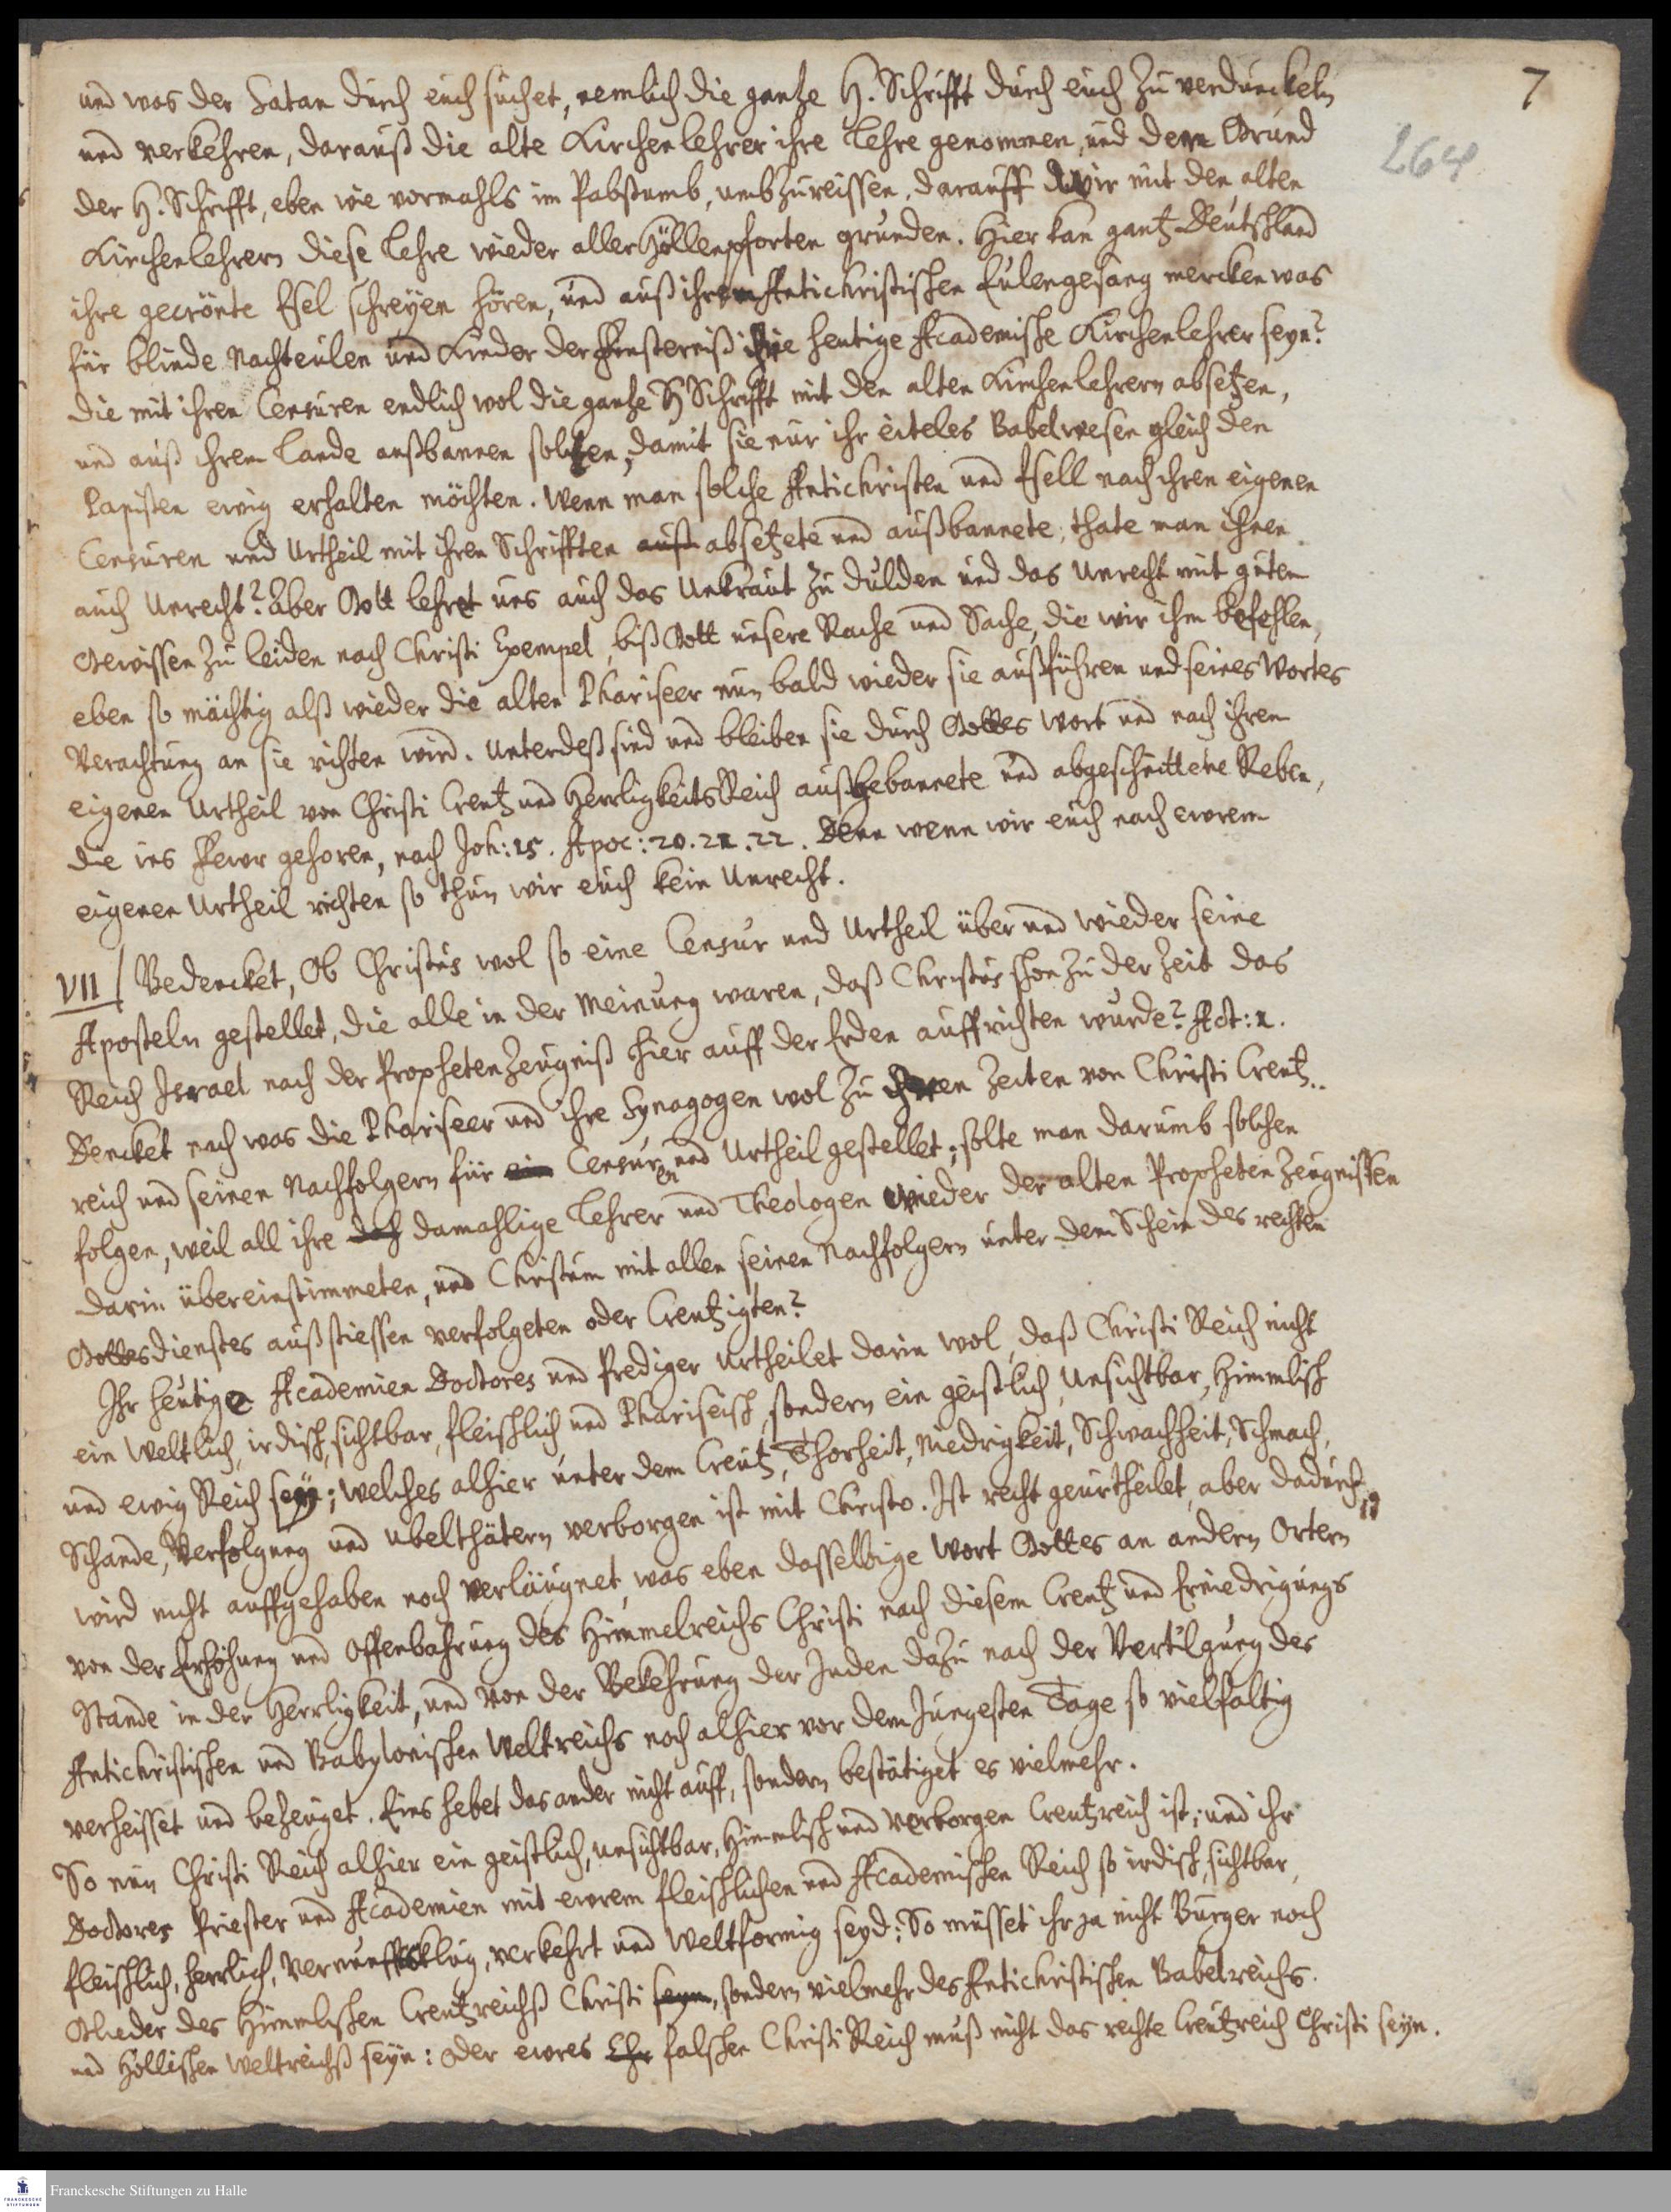 7
264
und was der Satan durch euch suchet, nemlich die gantze H. Schrifft durch euch zu verdunckeln
und verkehren, darauß die alte Kirchenlehrer ihre Lehre genommen, und dem Grund
der H. Schrifft, eben wie vormahls im Pabstumb, umbzureissen, darauff wir mit den alten
Kirchenlehrern diese Lehre wieder aller Höllenpforten gründen. Hier kan gantz Deutschland
ihre gecrönte Esel schreyen hören, und auß ihrem Antichristischen Eulengesang mercken was
für blinde Nachteulen und Kinder der Finsterniß ihre heutige Academische Kirchenlehrer seyn?
die mit ihren Censuren endlich wol die gantze H Schrifft mit den alten Kirchenlehrern absetzen,
und auß ihrem Lande außbannen solten, damit sie nur ihr eiteles Babelwesen gleich den
Papisten ewig erhalten möchten. Wenn man solche Antichristen und Esell nach ihren eigenen
Censuren und Urtheil mit ihren Schrifften auß absetzete und außbannete, thate man ihnen
auch Unrecht? Aber Gott lehret uns auch das Unkraut zu dulden und das Unrecht mit gutem
Gewissen zu leiden nach Christi Exempel, biß Gott unsere Rache und Sache, die wir ihm befehlen,
eben so mächtig alß wieder die alten Phariseer nun bald wieder sie außführen und seines Wortes
Verachtung an sie richten wird. Unterdeß sind und bleiben sie durch Gottes Wort und nach ihrem
eigenen Urtheil von Christi Creutz und HerrligkeitsReich außgebannete und abgeschnittene Reben,
die ins Fewr gehoren, nach Joh: 15. Apoc: 20. 21. 22. Denn wenn wir euch nach ewrem
eigenen Urtheil richten so thun wir euch kein Unrecht.
VII Bedencket, Ob Christus wol so eine Censur und Urtheil über und wieder seine
Aposteln gestellet, die alle in der Meinung waren, daß Christus schon zu der Zeit das
Reich Israel nach der Propheten Zeugniß hier auff der Erden auffrichten wurde? Act: 1.
Dencket nach was die Phariseer und ihre Synagogen wol zu ihren Zeiten von Christi Creutz..
reich und seinen Nachfolgern für ein Censuren und Urtheil gestellet; solte man darumb solchen
folgen, weil all ihre doch damahlige Lehrer und Theologen wieder der alten Propheten Zeugnissen
darin übereinstimmeten, und Christum mit allen seinen Nachfolgern unter dem Schein des rechten
Gottesdienstes außstiessen verfolgeten oder Creutzigten?
Ihr heutige Academien Doctores und Prediger urtheilet darin wol, daß Christi Reich nicht
ein Weltlich, irdisch, sichtbar, fleischlich und Phariseisch, sondern ein geistlich, Unsichtbar, Himmlisch
und ewig Reich sey; welches alhier unter dem Creutz, Thorheit, Niedrigkeit, Schwachheit, Schmach,
Schande, Verfolgung und Ubelthätern verborgen ist mit Christo. Ist recht geurtheilet, aber dadurch
wird nicht auffgehaben noch verläugnet, was eben dasselbige Wort Gottes an andern Ortern
von der Erhöhung und Offenbahrung des Himmelreichs Christi nach diesem Creutz und Erniedrigungs
Stande in der Herrligkeit, und von der Bekehrung der Juden dazu nach der Vertilgung des
Antichristischen und Babylonischen Weltreichs noch alhier vor dem Jungesten Tage so vielfaltig
verheisset und bezeuget. Eins hebet das ander nicht auff, sondern bestätiget es vielmehr.
So nun Christi Reich alhier ein geistlich, unsichtbar, Himmlisch und verborgen Creutzreich ist, und ihr
Doctores Priester und Academien mit ewrem fleischlichen und Academischen Reich so irdisch, sichtbar,
fleischlich, herrlich, vernunfftklug, verkehrt und Weltformig seyd: So müsset ihr ja nicht Burger noch
Glieder des Himmlischen Creutzreichß Christi seyn, sondern vielmehr des Antichristischen Babelreichs
und Höllischen Weltreichß seyn: oder ewres Chr falschen Christi Reich muß nicht das rechte Creutzreich Christi seyn.
FRANCKESCHE STIFTUNGEN
Franckesche Stiftungen zu Halle